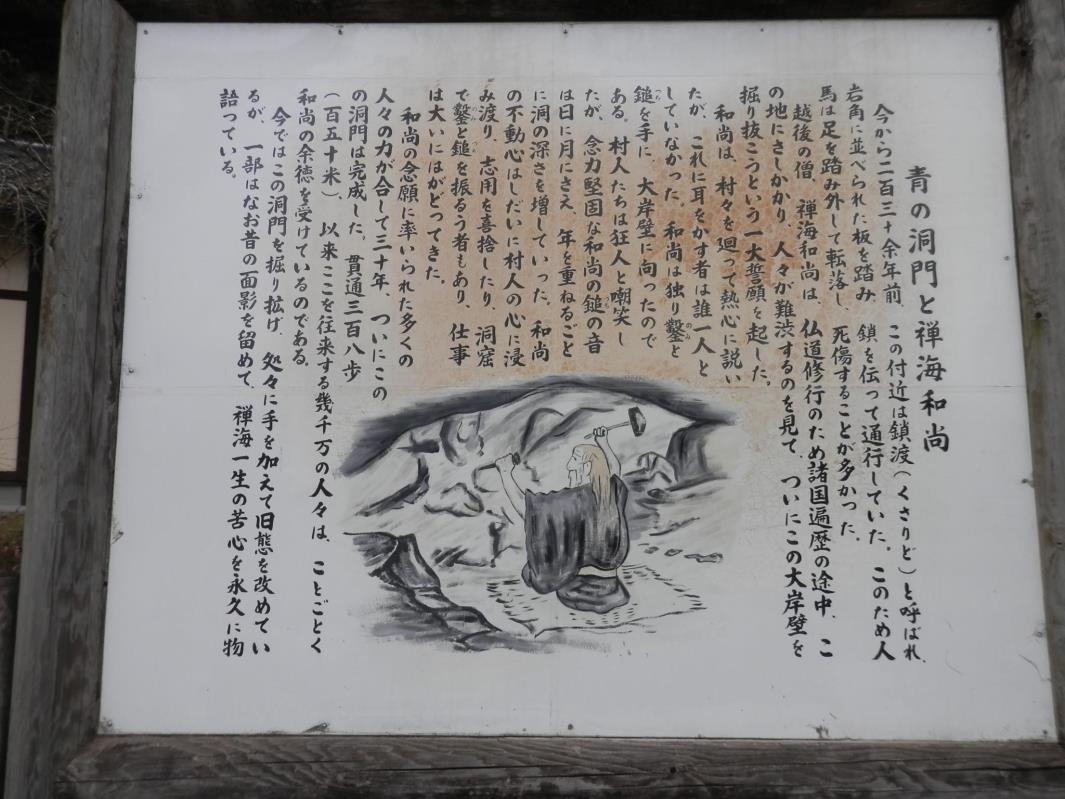 青の洞門と禅海和尚
今から二百三十余年前、この付近は鎖渡(くさりど)と呼ばれ、
岩角に並べられた板を踏み、鎖を伝って通行していた。このため人
馬は足を踏み外して転落し、死傷することが多かった。
越後の僧、禅海和尚は、仏道修行のため諸国遍歴の途中、こ
の地にさしかかり、人々が難渋するのを見て、ついにこの大岸壁を
掘り抜こうという一大誓願を起した。
和尚は、村々を廻って熱心に説い
たが、これに耳をかす者は誰一人と
していなかった。和尚は独り鑿(のみ)と
鎚を手に、大岸壁に向ったので
ある。村人たちは狂人と嘲笑し
たが、念力堅固な和尚の鎚の音
は日に月にさえ、年を重ねるごと
に洞の深さを増していった。和尚
の不動心はしだいに村人の心に浸
み渡り、志用を喜捨したり、洞窟
で鑿と鎚を振るう者もあり、仕事
は大いにはがどってきた。
和尚の念願に率いられた多くの
人々の力が合して三十年、ついにこの
の洞門は完成した。貫通三百八歩
(百五十米)、以来ここを往来する幾千万の人々は、ことごとく
和尚の余徳を受けているのである。
今ではこの洞門を掘り拡げ、処々に手を加えて旧態を改めてい
るが、一部はなお昔の面影を留めて、禅海一生の苦心を永久に物
語っている。